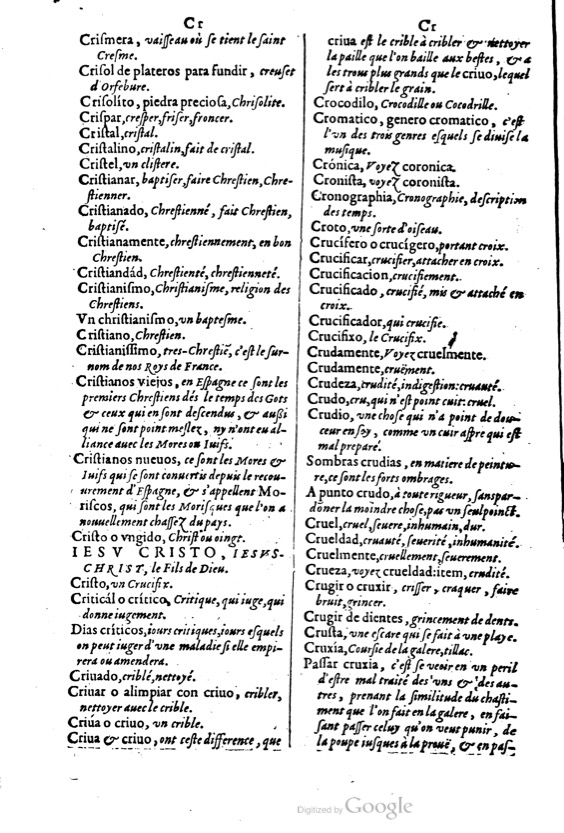 Cr
Criſmera, vaiſſeau où ſe tient le ſaint
Creſme.
Criſol de plateros para fundir, creuſet
d'Orfebure.
Criſolito, piedra precioſa, Chriſolite.
Criſpar, creſper, friſer, froncer.
Criſtal, criſtal.
Criſtalino, criſtalin, fait de criſtal.
Criſtel, vn cliſtere.
Criſtianar, baptiſer, faire Chreſtien, Chre-
ſtienner.
Criſtianado, Chreſtienné, fait Chreſtien,
baptiſé.
Criſtianamente, chreſtiennement, en bon
Chreſtien.
Criſtiandád, Chreſtienté, chreſtienneté.
Criſtianiſmo, Chriſtianiſme, religion des
Chreſtiens.
Vn chriſtianiſmo, vn bapteſme.
Criſtiano, Chreſtien.
Criſtianiſſimo, tres-Chreſtiē, c'eſt le ſur-
nom de nos Roys de France.
Criſtianos viejos, en Eſpagne ce ſont les
premiers Chreſtiens dés le temps des Gots
& ceux qui en ſont deſcendus, & auſſi
qui ne ſont point meſlez, ny n'ont eu al-
liance auec les Mores ou Iuifs.
Criſtianos nueuos, ce ſont les Mores &
Iuifs qui ſe ſont conuertis depuis le recou-
urement d'Eſpagne, & s'appellent Mo-
riſcos, qui ſont les Moriſques que l'on a
nouuellement chaſſez du pays.
Criſto o vngido, Chriſt ou oingt.
IESV CRISTO, IESVS-
CHRIST, le Fils de Dieu.
Criſto, vn Crucifix.
Criticál o crítico, Critique, qui iuge, qui
donne iugement.
Dias críticos, iours critiques, iours eſquels
on peut iuger d'vne maladie ſi elle empi-
rera ou amendera.
Criuado, criblé, nettoyé.
Criuar o alimpiar con criuo, cribler,
nettoyer auec le crible.
Criua o criuo, vn crible.
Criua & criuo, ont ceſte difference, que
Cr
criua eſt le crible à cribler & nettoyer
la paille que l'on baille aux beſtes, & a
les trous plus grands que le criuo, lequel
ſert à cribler le grain.
Crocodilo, Crocodille ou Cocodrille.
Cromatico, genero cromatico, c'eſt
l'vn des trois genres eſquels ſe diuiſe la
muſique.
Crónica, Voyez coronica.
Croniſta, voyez coroniſta.
Cronographia, Cronographie, deſcription
des temps.
Croto, vne ſorte d'oiſeau.
Crucífero o crucígero, portant croix.
Crucificar, crucifier, attacher en croix.
Crucificacion, crucifiement.
Crucificado, crucifié, mis & attaché en
croix.
Crucificador, qui crucifie.
Crucifixo, le Crucifix.
Crudamente, Voyez cruelmente.
Crudamente, cruëment.
Crudeza, crudité, indigeſtion: cruauté.
Crudo, cru, qui n'eſt point cuit: cruel.
Crudio, vne choſe qui n'a point de dou-
ceur en ſoy, comme vn cuir aſpre qui eſt
mal preparé.
Sombras crudias, en matiere de peintu-
re, ce ſont les forts ombrages.
A punto crudo, à toute rigueur, ſans par-
donner la moindre choſe, pas vn ſeul poinct.
Cruel, cruel, ſeuere, inhumain, dur.
Crueldad, cruauté, ſeuerité, inhumanité.
Cruelmente, cruellement, ſeuerement.
Crueza, voyez crueldad: item, crudité.
Crugir o cruxir, criſſer, craquer, faire
bruit, grincer.
Crugir de dientes, grincement de dents.
Cruſta, vne eſcare qui ſe fait à vne playe.
Cruxia, Courſie de la galere, tillac.
Paſſar cruxia, c'eſt ſe veoir en vn peril
d'eſtre mal traité des vns & des au-
tres, prenant la ſimilitude du chaſti-
ment que l'on fait en la galere, en fai-
ſant paſſer celuy qu'on veut punir, de
la poupe iuſques à la prouë, & en paſ-
Digitized by Google